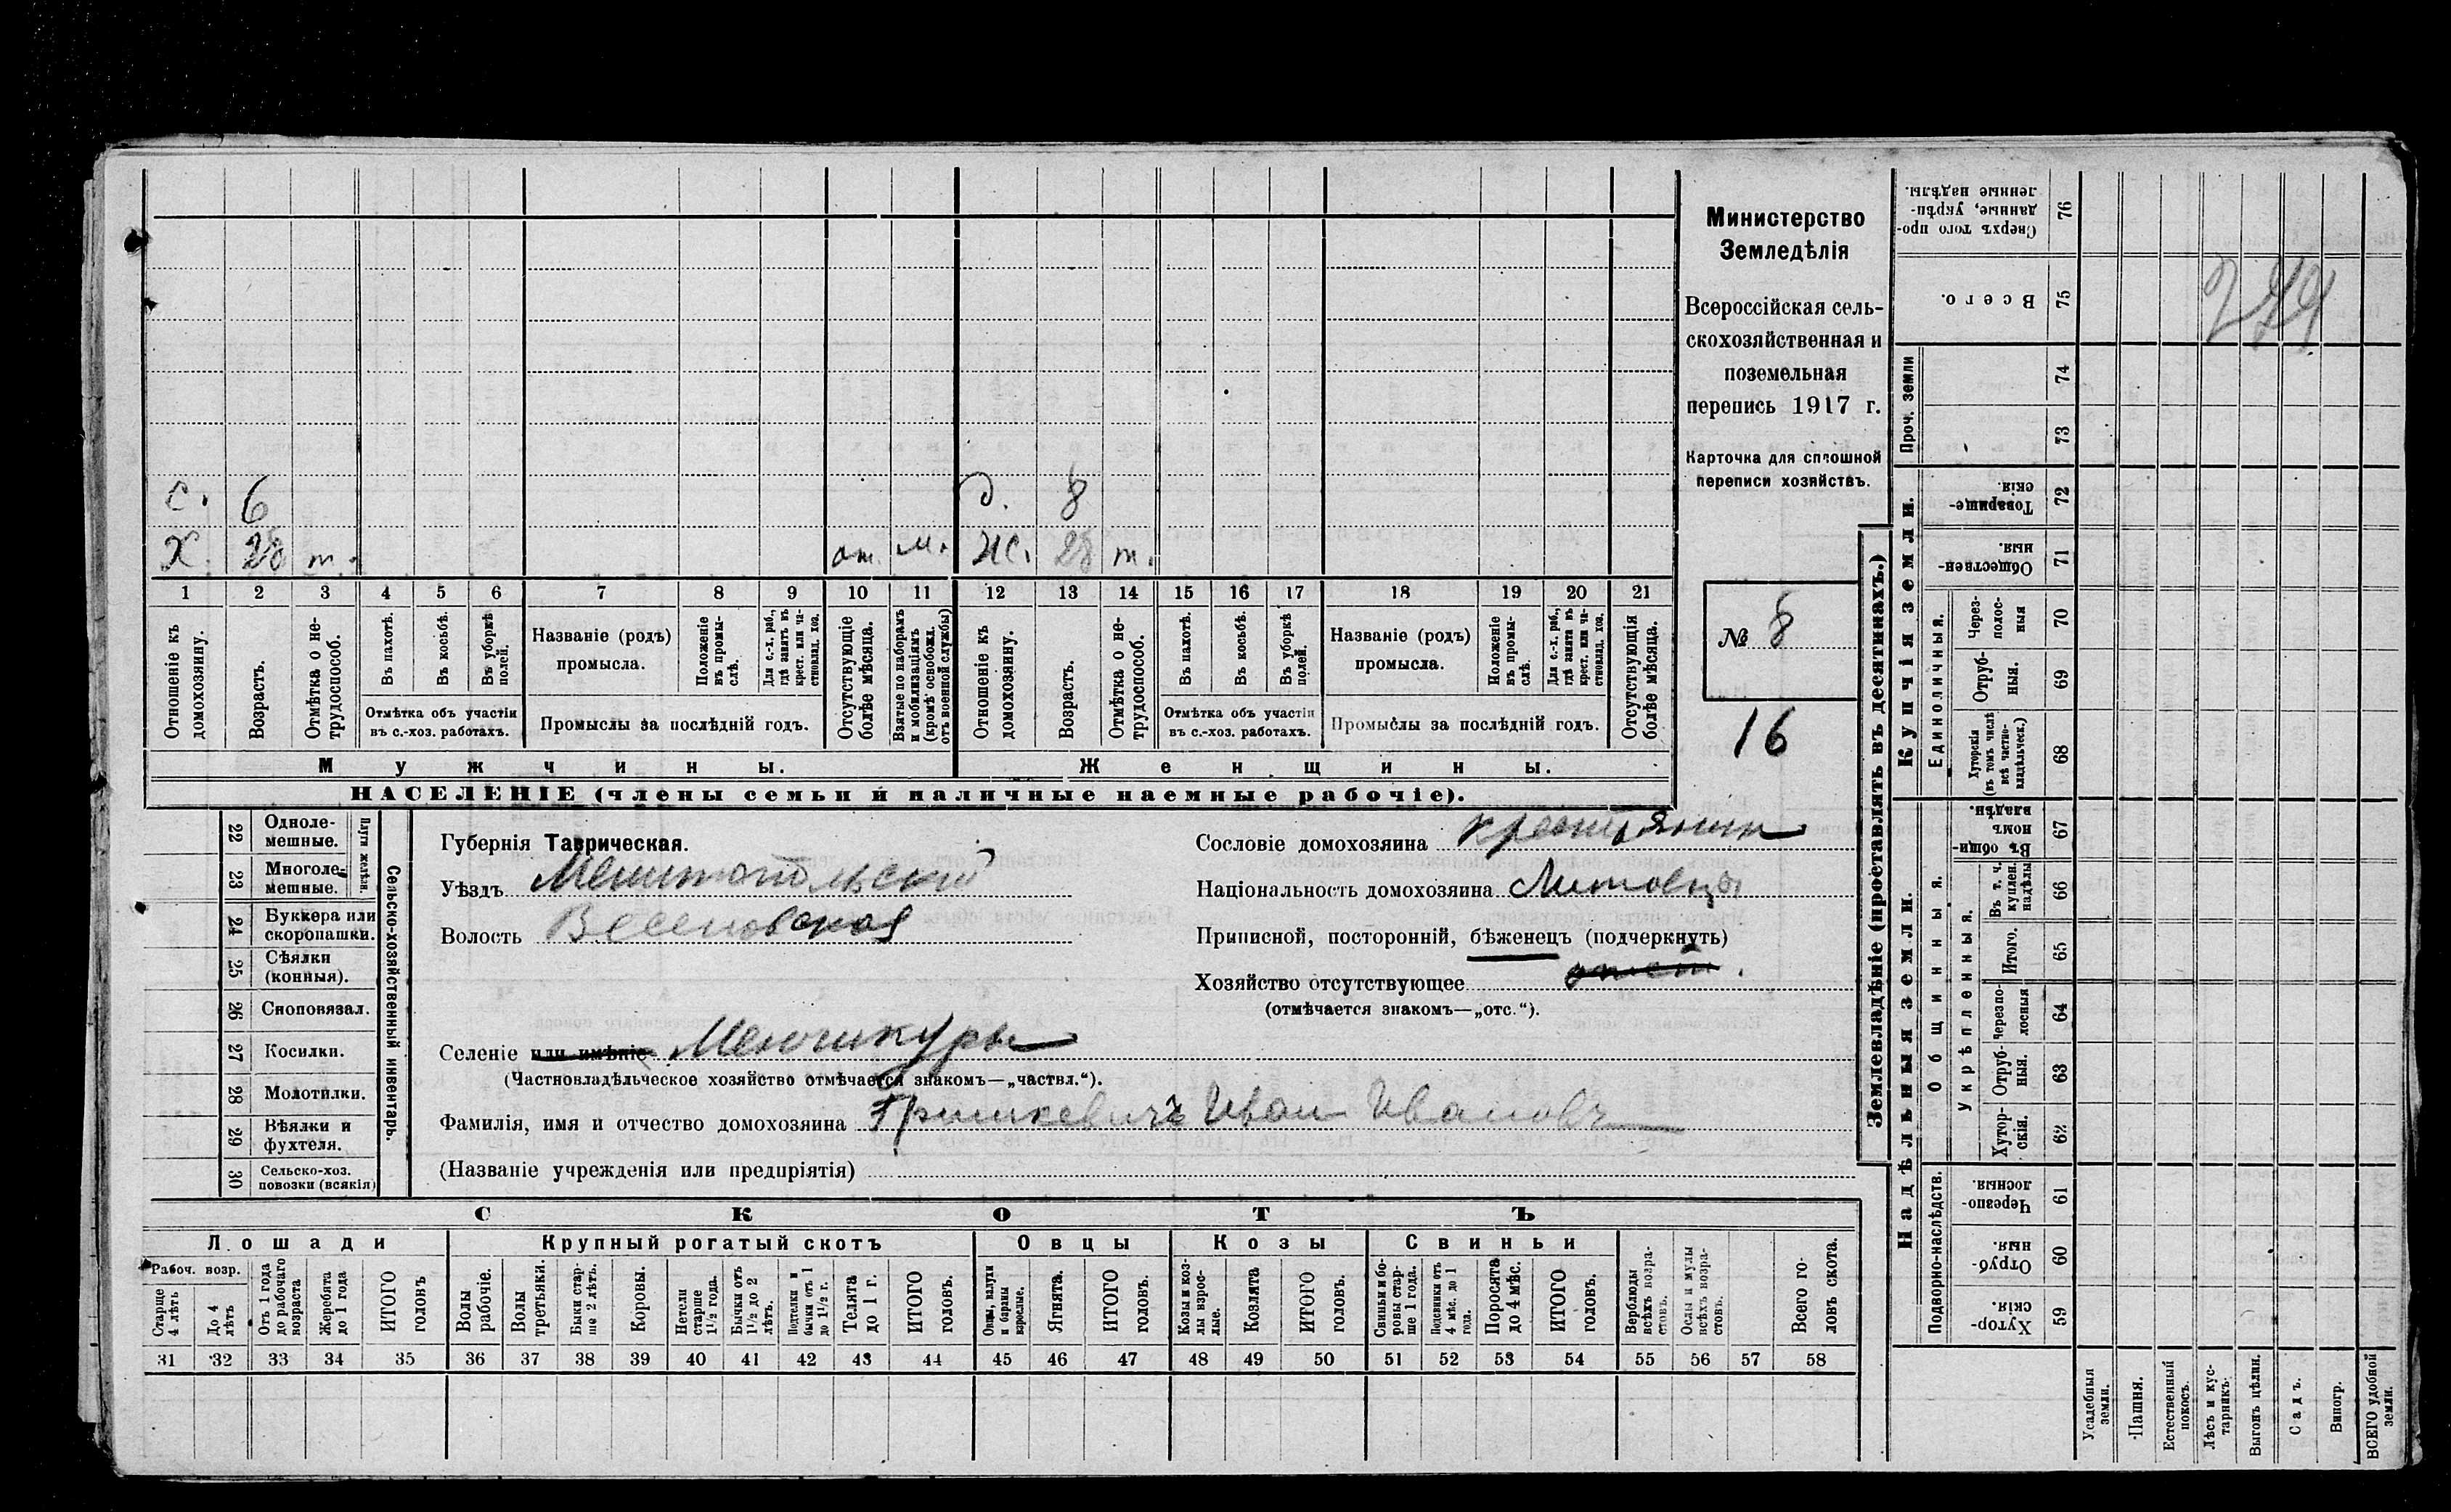 с. 6 д. 8
Х. 28 т. от. м. Ж. 28 т.
1 2 3 4 5 6 7 8 9 10 11 12 13 14 15 16 17 18 19 20 21
Отношеніе къ домохозяину.
Возрастъ.
Отмѣтка о не-трудоспособ.
Въ пахотѣ.
Въ косьбѣ.
Въ уборкѣ полей.
Отмѣтка объ участіи
въ с.-хоз. работахъ.
Названіе (родъ)
промысла.
Положеніе въ промы-слѣ.
Для с.-х. раб., гдѣ занятъ въ крест. или ча-стновлад. хоз.
Промыслы за послѣдній годъ.
Отсутствующіе болѣе мѣсяца.
Взятые по наборамъ и мобилизаціямъ (кромѣ освобожд. отъ военной службы)
Отношеніе къ домохозяину.
Возрастъ.
Отмѣтка о не-трудоспособ.
Въ пахотѣ.
Въ косьбѣ.
Въ уборкѣ полей.
Отмѣтка объ участіи
въ с.-хоз. работахъ.
Названіе (родъ)
промысла.
Положеніе въ промы-слѣ.
Для с.-х. раб., гдѣ занята въ крест. или ча-стновлад. хоз.
Промыслы за послѣдній годъ.
Отсутствующія болѣе мѣсяца.
Мужчины. Женщины.
НАСЕЛЕНІЕ (члены семьи и наличные наемные рабочіе).
Министерство
Земледѣлія
Всероссійская сель-
скохозяйственная и
поземельная
перепись 1917 г.
Карточка для сплошной
переписи хозяйствъ.
№ 8
16
22 Одноле-мешные.
23 Многоле-мешные.
Плуги желѣзн.
24 Буккера или скоропашки.
25 Сѣялки (конныя).
26 Сноповязал.
27 Косилки.
28 Молотилки.
29 Вѣялки и фухтеля.
30 Сельско-хоз. повозки (всякія)
Сельско-хозяйственный инвентарь.
Губернія Таврическая.
Уѣздъ Мелитопольскій
Волость Веселовская
Селеніе или имѣніе Менчикуры
(Частновладѣльческое хозяйство отмѣчается знакомъ—„частвл.“).
Фамилія, имя и отчество домохозяина Гришкевичъ Иван Ивановъ
(Названіе учрежденія или предпріятія)
Сословіе домохозяина крестьянин
Національность домохозяина Литовцы
Приписной, посторонній, бѣженецъ (подчеркнуть)
Хозяйство отсутствующее
(отмѣчается знакомъ—„отс.“).
СКОТЪ
Лошади Крупный рогатый скотъ Овцы Козы Свиньи
Рабоч. возр.
Старше 4 лѣтъ
До 4 лѣтъ
Отъ 1 года до рабочаго возраста
Жеребята до 1 года
ИТОГО головъ
Волы рабочіе.
Волы третьяки.
Быки стар-ше 2 лѣтъ.
Коровы.
Нетели старше 1½ года.
Бычки отъ 1½ до 2 лѣтъ.
Подтелки и бычки отъ 1 до 1½ г.
Телята до 1 г.
ИТОГО головъ.
Овцы, валухи и бараны взрослые.
Ягнята.
ИТОГО головъ.
Козы и коз-лы взрос-лые.
Козлята
ИТОГО головъ.
Свиньи и бо-ровы стар-ше 1 года.
Подсвинки отъ 4 мѣс. до 1 года.
Поросята до 4 мѣс.
ИТОГО головъ.
Верблюды всѣхъ возра-стовъ.
Ослы и мулы всѣхъ возра-стовъ.
Всего го-ловъ скота.
31 32 33 34 35 36 37 38 39 40 41 42 43 44 45 46 47 48 49 50 51 52 53 54 55 56 57 58
Землевладѣніе (проставлять въ десятинахъ.)
Купчія земли.
Надѣльныя земли.
76 Сверхъ того про-данные, укрѣп-ленные надѣлы.
75 Всего.
Проч. земли
74
73
72 Товарище-скія.
71 Обществен-ныя.
Единоличныя.
70 Через-полос-ныя
69 Отруб-ныя.
68 Хуторскія (въ томъ числѣ всѣ частно-владѣльческ.)
Общинныя.
67 Въ общин-номъ владѣн.
Укрѣпленныя.
66 Въ т. ч. куплен. надѣлы
65 Итого.
64 Черезпо-лосныя
63 Отруб-ныя.
62 Хутор-скія.
Подворно-наслѣдств.
61 Черезпо-лосныя.
60 Отруб-ныя.
59 Хутор-скія.
Усадебныя земли.
Пашня.
Естественный покосъ.
Лѣсъ и кус-тарникъ.
Выгонъ цѣлин.
Садъ.
Виногр.
ВСЕГО удобной земли.